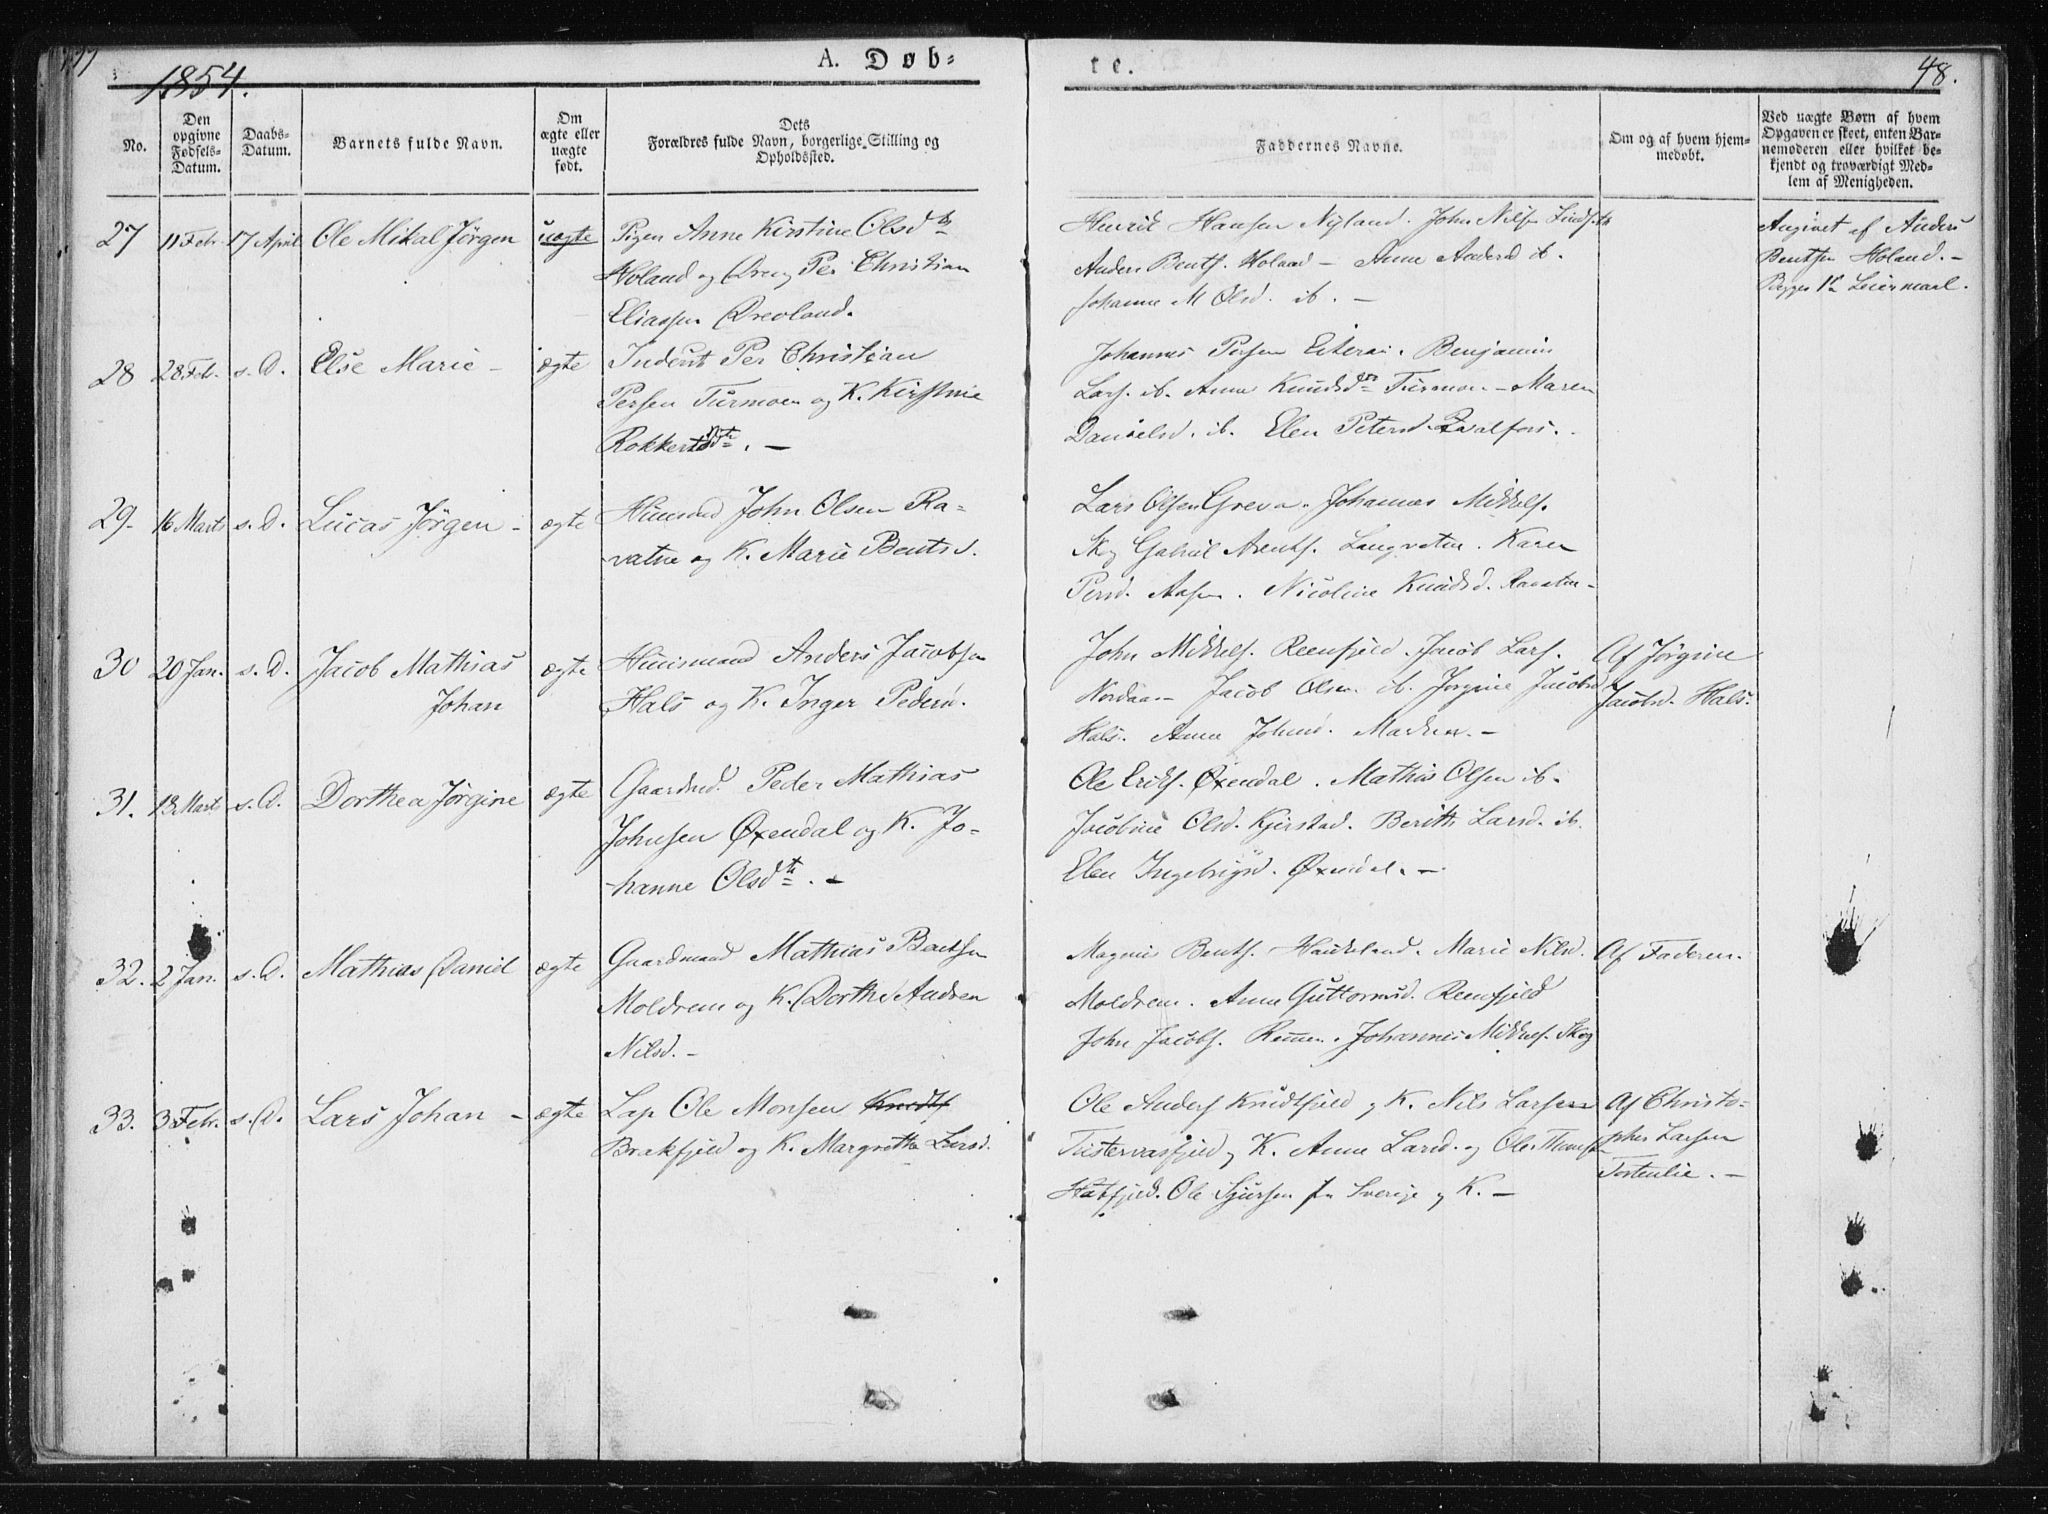 1854.
A. Døb-
te.
48.
No.
Den opgivne Fødsels-Datum.
Daabs-Datum.
Barnets fulde Navn.
Om ægte eller uægte født.
Dets Forældres fulde Navn, borgerlige Stilling og Opholdssted.
Faddernes Navne.
Om og af hvem hjem-
medøbt.
Ved uægte Børn af hvem
Opgaven er skeet, enten Bar-
nemoderen eller hvilket be-
kjendt og troværdigt Med-
lem af Menigheden.
27 11 Febr. 17 April Ole Mikal Jørgen uægte
Pigen Anne Kirstine Olsdtr
Holand og Dreng Per Christian
Eliassen Drevland.
Henrik Hansen Nyland. John Nilsen
Anders Bents. Holand - Anne Andersd ib.
Johanne M Olsd. ib. -
Angivet af Anders
Bentsen Holand. -
Begges 1ste Leiermaal.
28 28 Febr. s. D. Else Marie - ægte
Inderst Per Christian
Persen Turmoen og K. Kirstine
Johannes Persen Eiteraa. Benjamin
Lars. ib. Anne Knudsdtr Turmoen - Maren
Danielsd. ib. Elen Petersd. Kvalfors.
29. 16 Marts s. D. Lucas Jørgen - ægte
Huusmd John Olsen Ra-
vatne og K. Marie Bentsd.
Lars Olsen Greva. Johannes Mikkels.
Skog Gabriel Arents. Langvatn. Karen
Persd. Aasen. Nicoline Knudsd.
30 20 Jan. s. D. Jacob Mathias
Johan ægte
Huusmand Anders Jacobsen
Hals og K. Inger Pedersd.
John Mikkels. Reenfjeld. Jacob Lars.
Nordaa - Jacob Olsen ib. Jørgine Jacobsd
Hals. Anne Johnsd.
Af Jørgine
Jacobsd. Hals.
31. 13 Mart s. D. Dorthea Jørgine ægte
Gaardmd. Peder Mathias
Johnsen Øxendal og K. Jo-
hanne Olsdtr. -
Ole Eriks. Øxendal. Mathis Olsen ib.
Jacobine Olsd. Kjerstad. Berith Larsd. ib.
Elen Ingebrigsd. Øxendal. -
32. 2 Jan. s. D. Mathias Daniel ægte
Gaardmand Mathias Bentsen
Moldrem og K. Dorthe Andrea
Nilsd. -
Magnus Bents. Haukeland. Marie Nilsd.
Moldrem. Anne Guttormsd. Reenfjeld
John Jacobs. Remen. Johannes Mikkels. Skog
Af Faderen.
33. 3 Febr. s. D. Lars Johan - ægte
Lap Ole Monsen
Brakfjeld og K. Margrethe Larsd.
Ole Anders Knudtfjeld og K. Nils Larsen
Tustervasfjeld og K. Anne Larsd. og Ole Thomas
Hatfjeld. Ole Sjursen fra Sverige og K. -
Af Christo-
pher Larsen
Tortenlie. -